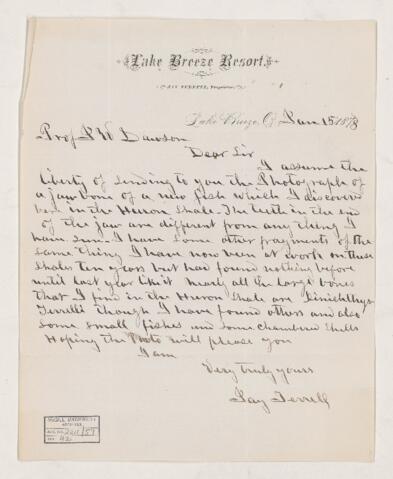 Lake Breeze Resort.
JAY TERRELL, Proprietor.
Lake Breeze, O. Jan 15 1878
Prof J W Dawson
Dear Sir
I assume the
liberty of sending to you the Photograph of
a jaw bone of a new fish which I discovered
here in the Huron Shale. The teeth in the end
of the jaw are different from any thing I
have seen. I have some other fragments of the
same thing I have now been at work on these
Shales ten years but has found nothing before
until last year like it Nearly all the large bones
that I find in the Huron Shale are Dinichthys
Terrelli though I have found others and also
some small fishes and some chambered shells
Hoping the Photo will please you
I am
Very truly yours
Jay Terrell
McGILL UNIVERSITY
ARCHIVES
ACC. NO.
REF.